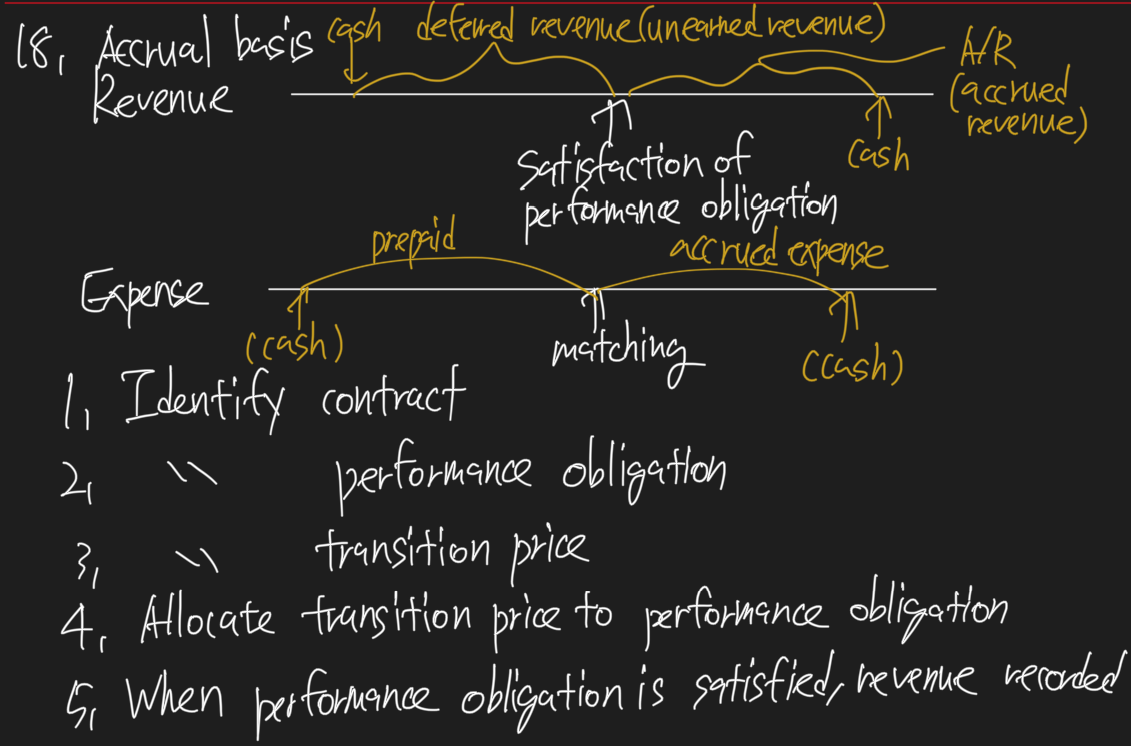 18, Accrual basis
Revenue
cash deferred revenue(unearned revenue)
A/R
(accrued
revenue)
Satisfaction of
performance obligation
Cash
Expense
prepaid
accrued expense
(cash)
matching
(cash)
1, Identify contract
2, 〃 performance obligation
3, 〃 transition price
4, Allocate transition price to performance obligation
5, When performance obligation is satisfied, revenue recorded